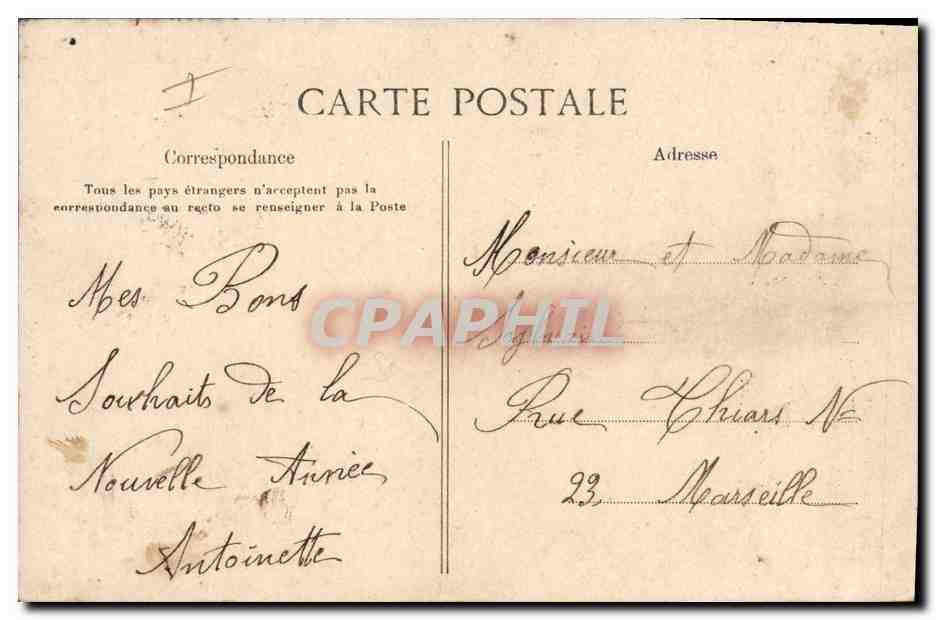 CARTE POSTALE
Correspondance
Tous les pays étrangers n'acceptent pas la
correspondance au recto se renseigner à la Poste
Mes Bons
Souhaits de la
Nouvelle Année
Antoinette
Adresse
Monsieur et Madame
Rue Thiars N°
23, Marseille
CPAPHIL